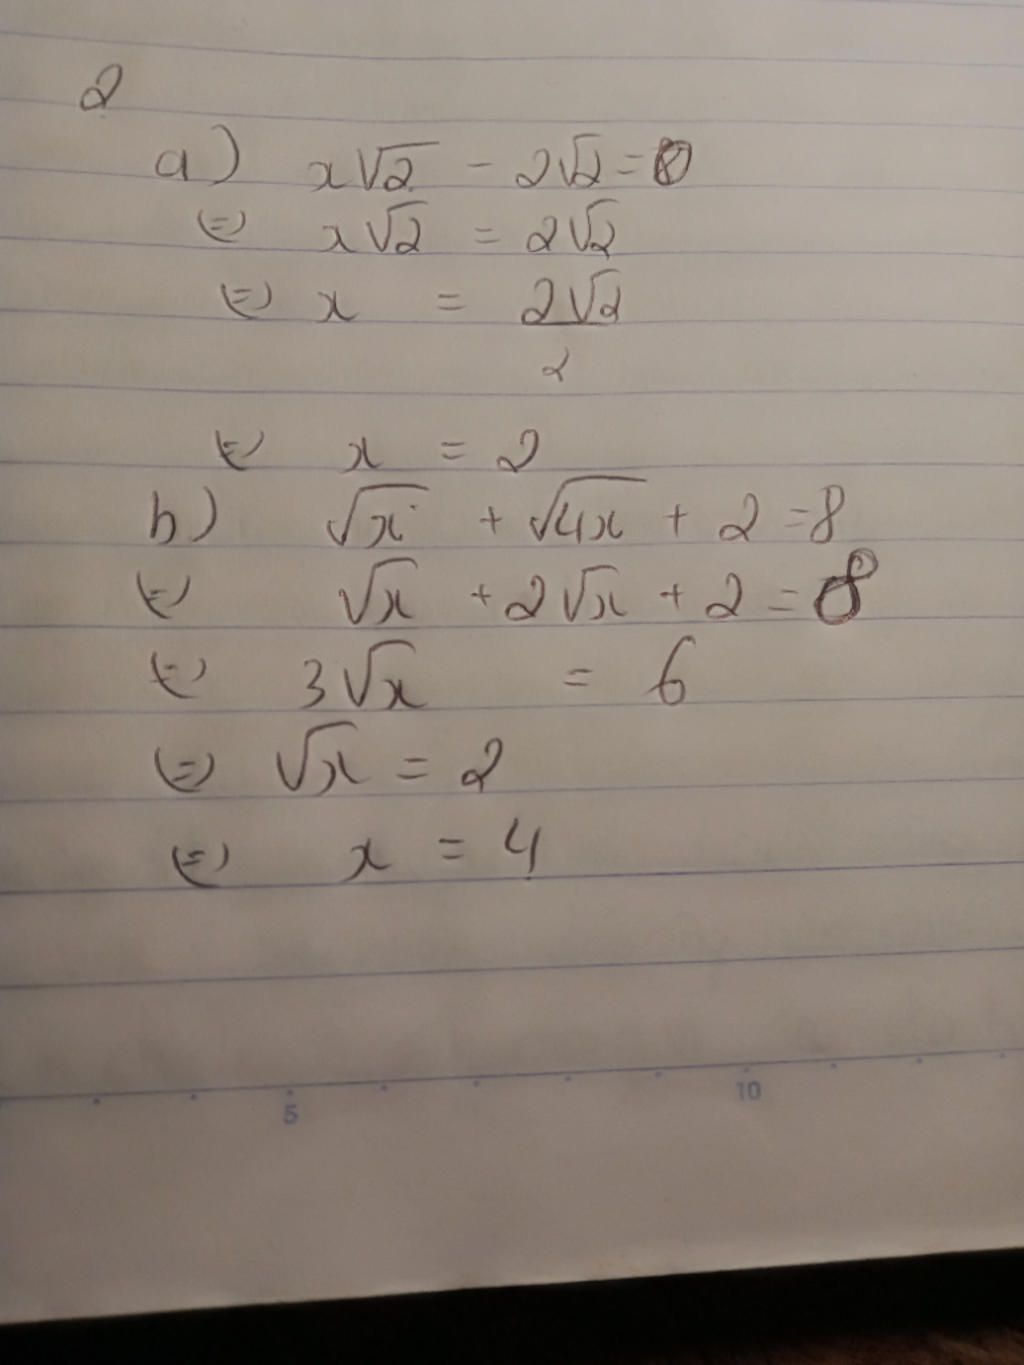 2
a) x√2 - 2√2 = 0
⇔ x√2 = 2√2
⇔ x = 2√2
2
⇔ x = 2
b) √x + √4x + 2 = 8
⇔ √x + 2√x + 2 = 8
⇔ 3√x = 6
⇔ √x = 2
⇔ x = 4
5 10